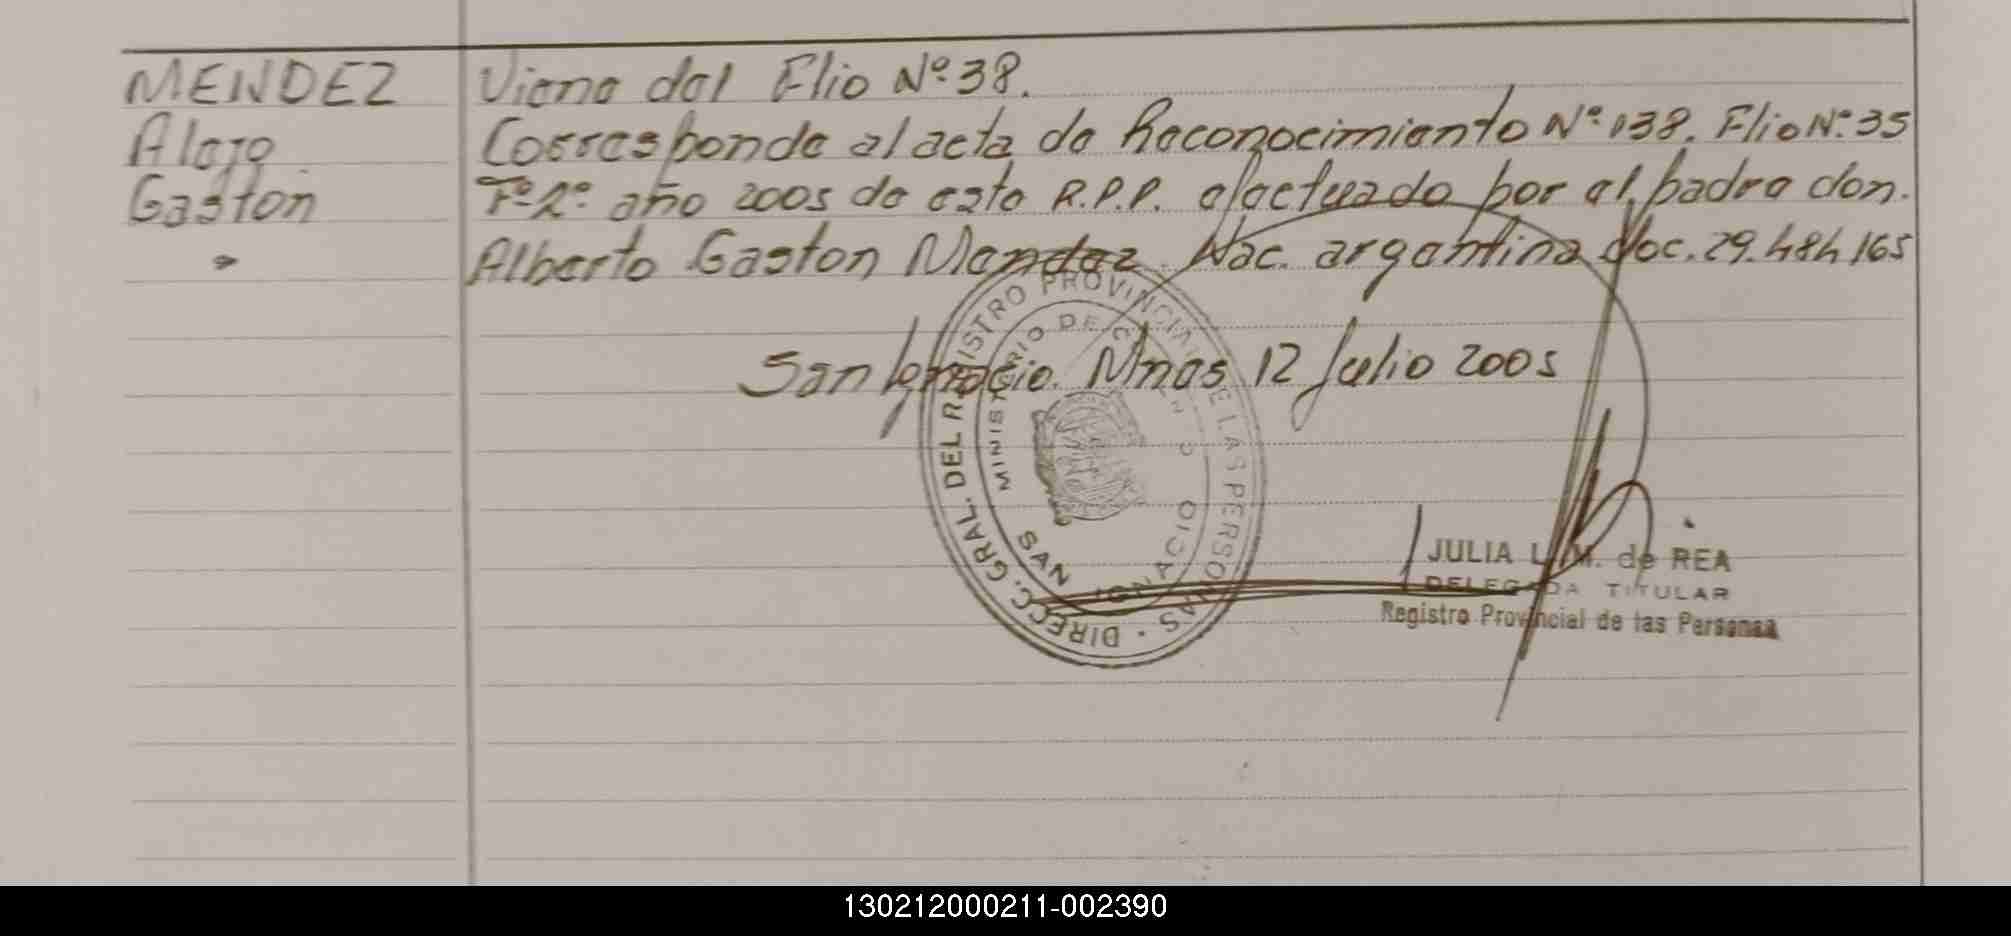 MENDEZ
Alejo
Gaston
Viene del Flio Nº 38.
Corresponde al acta de Reconocimiento Nº 138. Flio Nº 35
Tº 2º año 2005 de este R.P.P. efectuado por el padre don.
Alberto Gaston Mendez. Nac. argentina doc. 29.484165
San Ignacio. Mnes 12 Julio 2005
DIRECC. GRAL. DEL REGISTRO PROVINCIAL DE LAS PERSONAS
MINISTERIO DE
SAN IGNACIO
JULIA L. M. de REA
DELEGADA TITULAR
Registro Provincial de las Personas
130212000211-002390